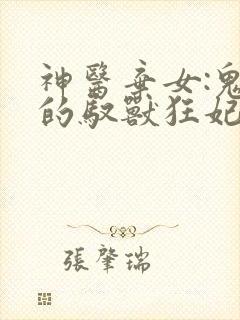 神醫棄女:鬼
的馭獸狂妃
張肇瑞